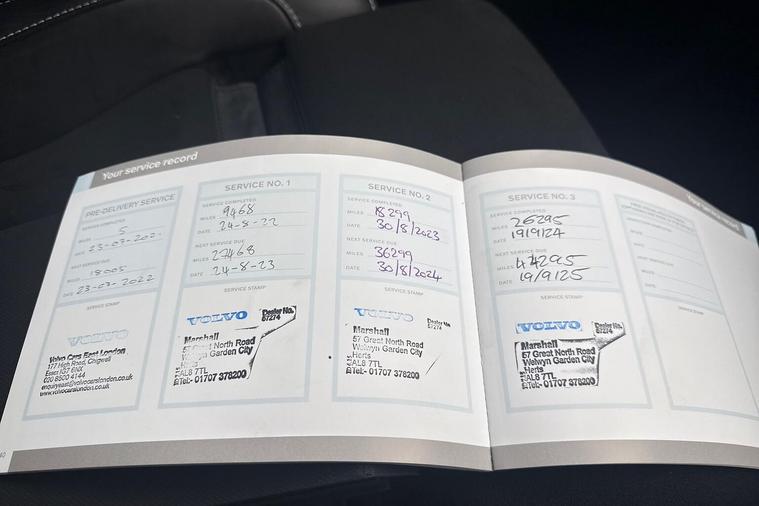 Your service record
PRE-DELIVERY SERVICE
SERVICE COMPLETED
MILES 5
DATE 23-07-202
NEXT SERVICE DUE
MILES 18005
DATE 23-07-2022
SERVICE STAMP
VOLVO
Volvo Cars East London
177 High Road, Chigwell
Essex IG7 6NX
020 8500 4144
enquiryeast@volvocarslondon.co.uk
www.volvocarslondon.co.uk
SERVICE NO. 1
SERVICE COMPLETED
MILES 9468
DATE 24-8-22
NEXT SERVICE DUE
MILES 27468
DATE 24-8-23
SERVICE STAMP
VOLVO
Dealer No.
67274
Marshall
57 Great North Road
Welwyn Garden City
Herts
AL8 7TL
Tel:- 01707 378200
SERVICE NO. 2
SERVICE COMPLETED
MILES 18299
DATE 30/8/2023
NEXT SERVICE DUE
MILES 36299
DATE 30/8/2024
SERVICE STAMP
VOLVO
Dealer No.
67274
Marshall
57 Great North Road
Welwyn Garden City
Herts
AL8 7TL
Tel:- 01707 378200
SERVICE NO. 3
SERVICE COMPLETED
MILES 26295
DATE 19/9/24
NEXT SERVICE DUE
MILES 44295
DATE 19/9/25
SERVICE STAMP
VOLVO
Dealer No.
67274
Marshall
57 Great North Road
Welwyn Garden City
Herts
AL8 7TL
Tel:- 01707 378200
Your service record
SERVICE COMPLETED
MILES
DATE
NEXT SERVICE DUE
MILES
DATE
SERVICE STAMP